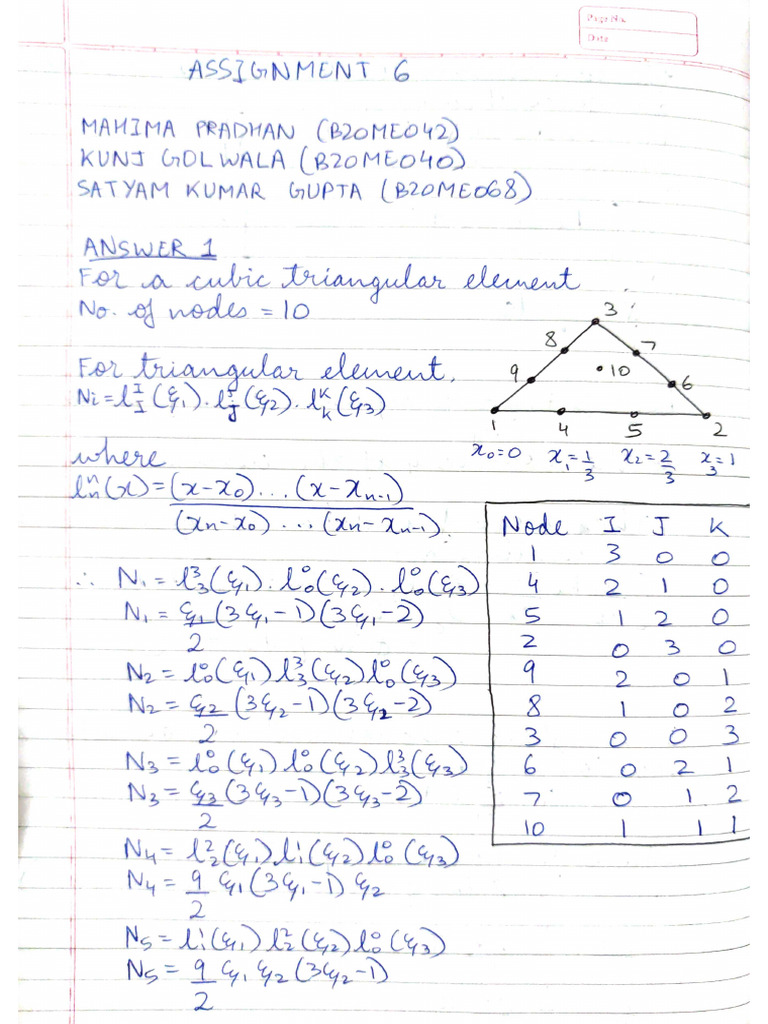 Page No.
Date
ASSIGNMENT 6
MAHIMA PRADHAN (B20ME042)
KUNJ GOLWALA (B20ME040)
SATYAM KUMAR GUPTA (B20ME068)
ANSWER 1
For a cubic triangular element
No. of nodes = 10
For triangular element,
Ni = l^I_I (ξ1) . l^J_J (ξ2) . l^K_K (ξ3)
where
l^n_n (x) = (x-x0) ... (x-xn-1) / (xn-x0) ... (xn-xn-1)
3
8 7
9 10 6
1 4 5 2
x0=0 x1=1/3 x2=2/3 x3=1
Node I J K
1 3 0 0
4 2 1 0
5 1 2 0
2 0 3 0
9 2 0 1
8 1 0 2
3 0 0 3
6 0 2 1
7 0 1 2
10 1 1 1
∴ N1 = l^3_3 (ξ1) . l^0_0 (ξ2) . l^0_0 (ξ3)
N1 = ξ1/2 (3ξ1-1)(3ξ1-2)
N2 = l^0_0 (ξ1) l^3_3 (ξ2) l^0_0 (ξ3)
N2 = ξ2/2 (3ξ2-1)(3ξ2-2)
N3 = l^0_0 (ξ1) l^0_0 (ξ2) l^3_3 (ξ3)
N3 = ξ3/2 (3ξ3-1)(3ξ3-2)
N4 = l^2_2 (ξ1) l^1_1 (ξ2) l^0_0 (ξ3)
N4 = 9/2 ξ1 (3ξ1-1) ξ2
N5 = l^1_1 (ξ1) l^2_2 (ξ2) l^0_0 (ξ3)
N5 = 9/2 ξ1 ξ2 (3ξ2-1)